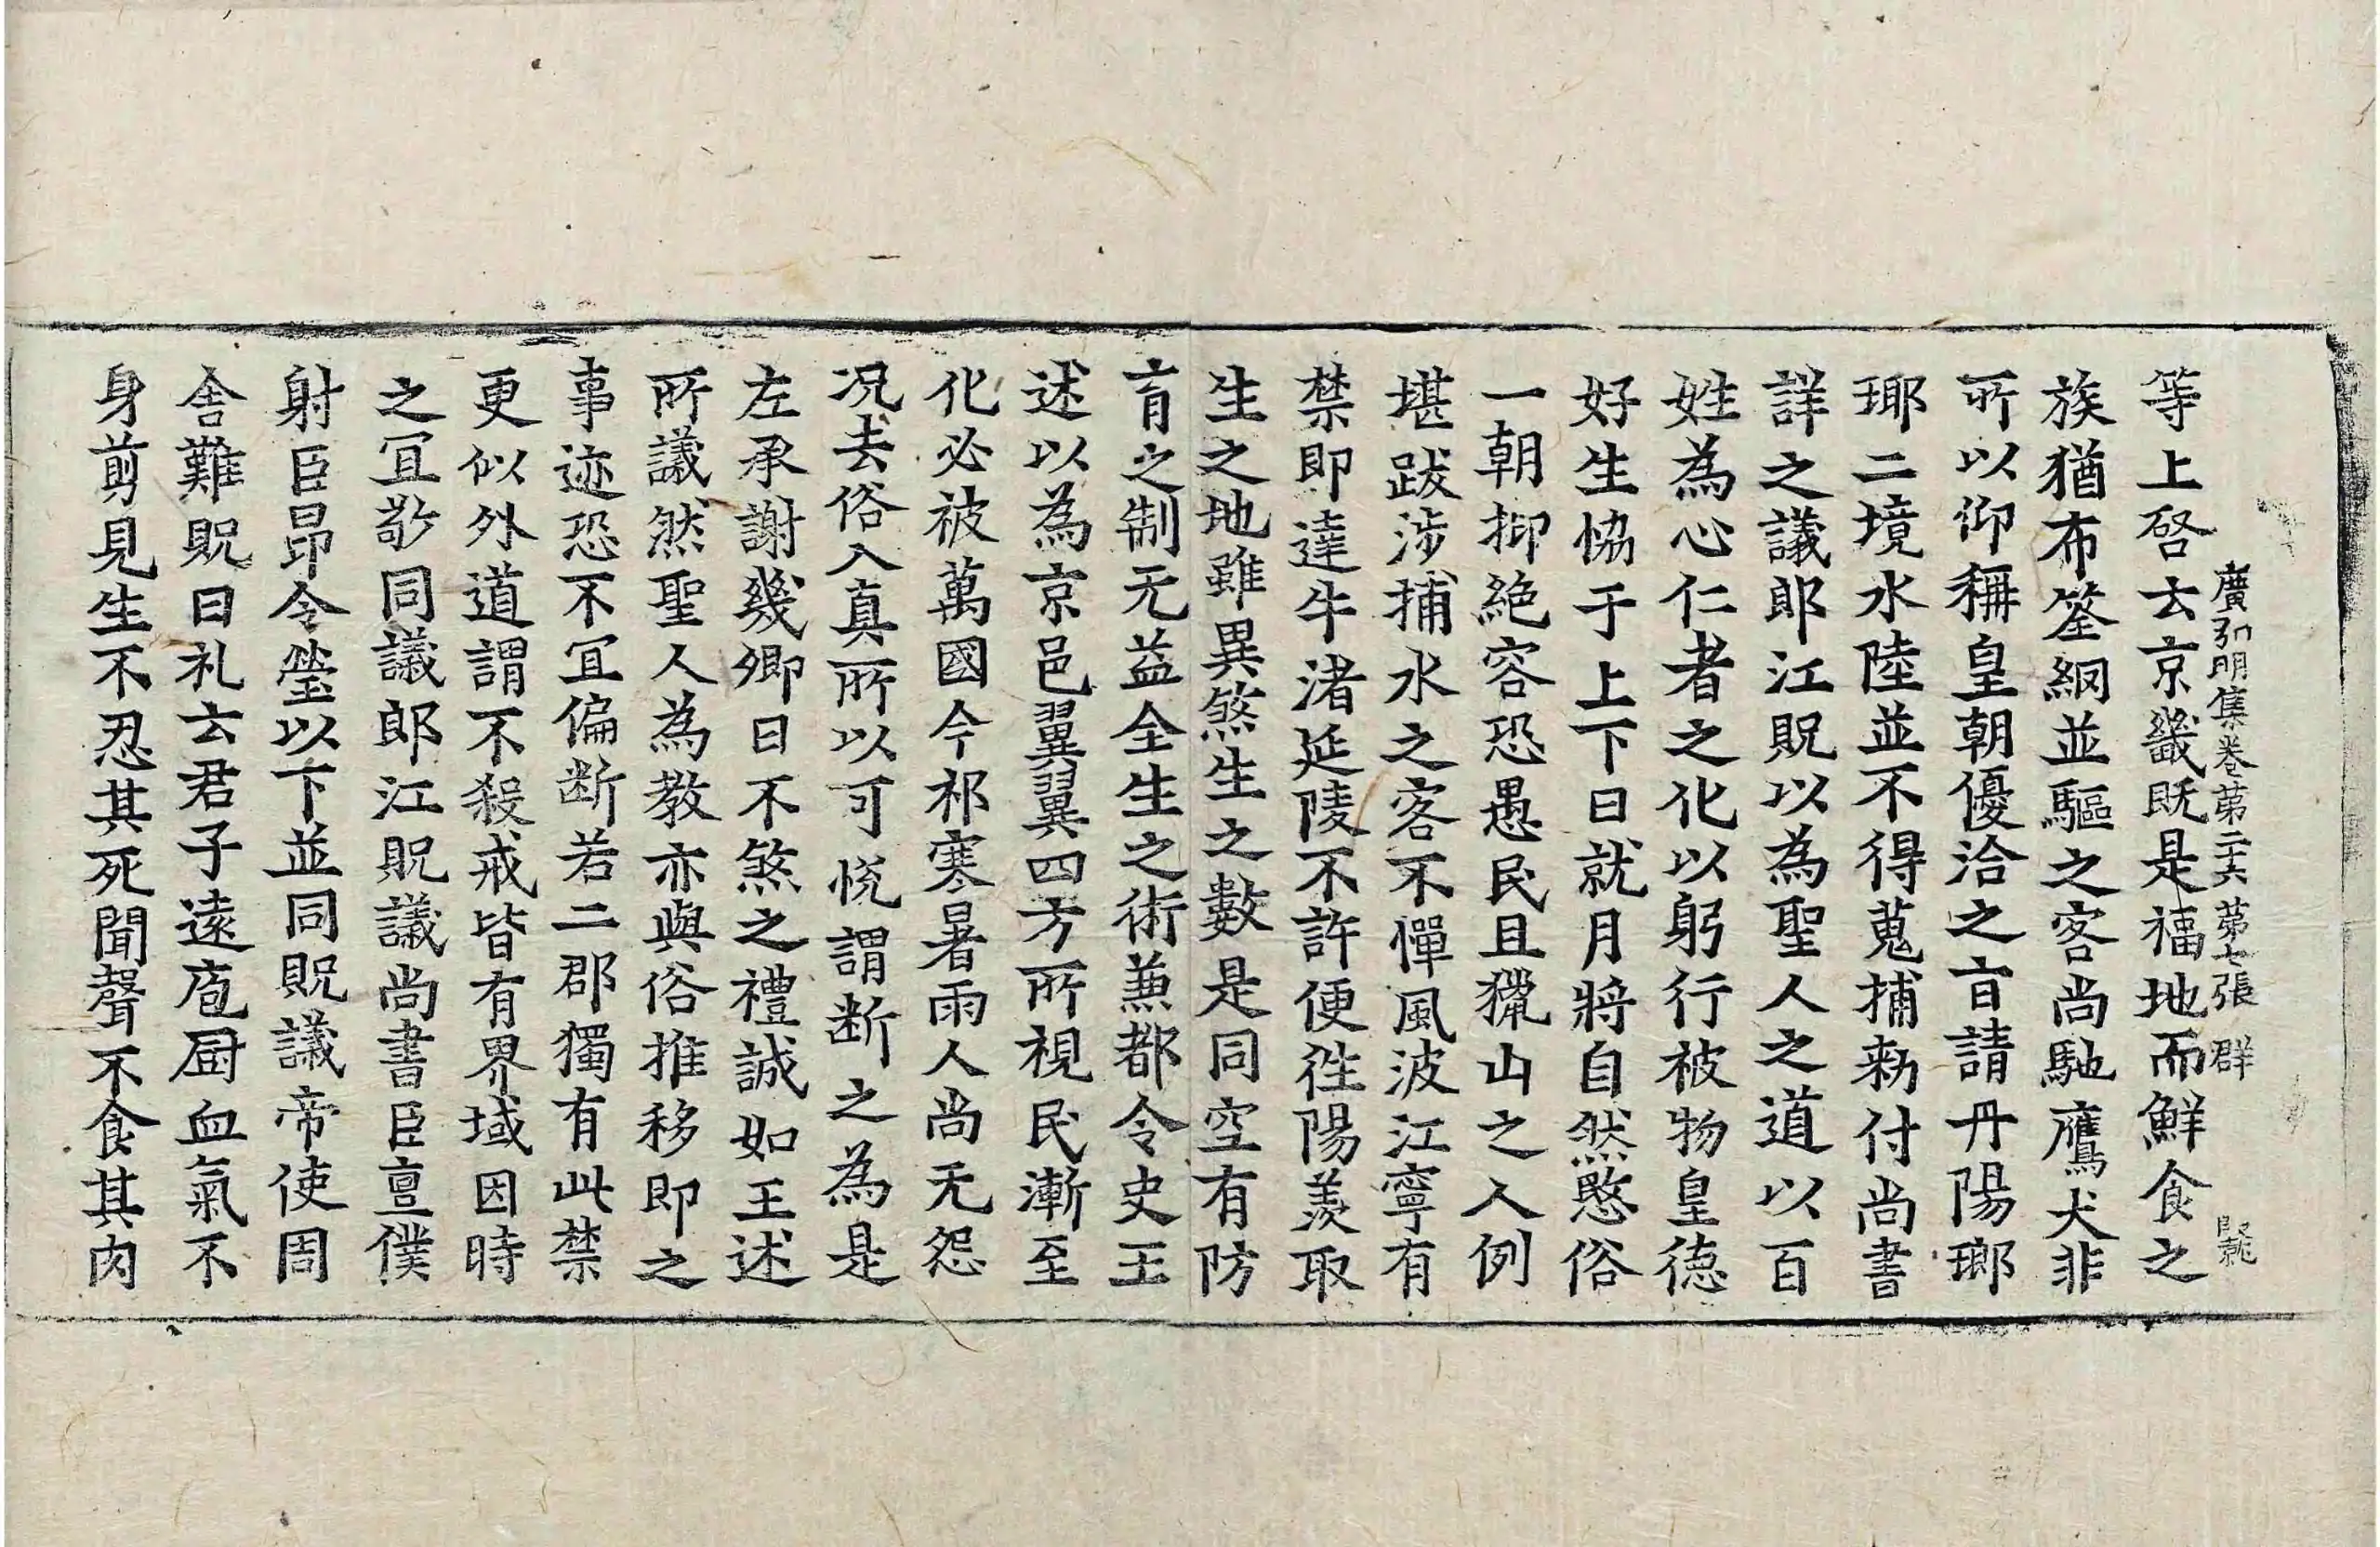 廣弘明集卷苐二十六 苐七張 群
等上啓云京畿既是福地而鮮食之
族猶布筌網並驅之客尚馳鷹犬非
所以仰稱皇朝優洽之旨請丹陽瑯
瑘二境水陸並不得蒐捕勑付尚書
詳之議郎江貺以為聖人之道以百
姓為心仁者之化以躬行被物皇德
好生協于上下日就月將自然愍俗
一朝抑絕容恐愚民且獵山之人例
堪跋涉捕水之客不憚風波江寧有
禁即達牛渚延陵不許便徃陽羨取
生之地雖異煞生之數是同空有防
育之制无益全生之術兼都令史王
述以為京邑翼翼四方所視民漸至
化必被萬國今祁寒暑雨人尚无怨
況去俗入真所以可悅謂断之為是
左承謝幾卿曰不煞之禮誠如王述
所議然聖人為教亦與俗推移即之
事迹恐不冝偏断若二郡獨有此禁
更似外道謂不殺戒皆有界域因時
之冝敬同議郎江貺議尚書臣亶僕
射臣昂令瑩以下並同貺議帝使周
舍難貺曰礼云君子遠庖厨血氣不
身剪見生不忍其死聞聲不食其肉